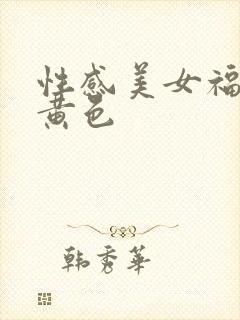 性感美女福
黄色
韩秀华